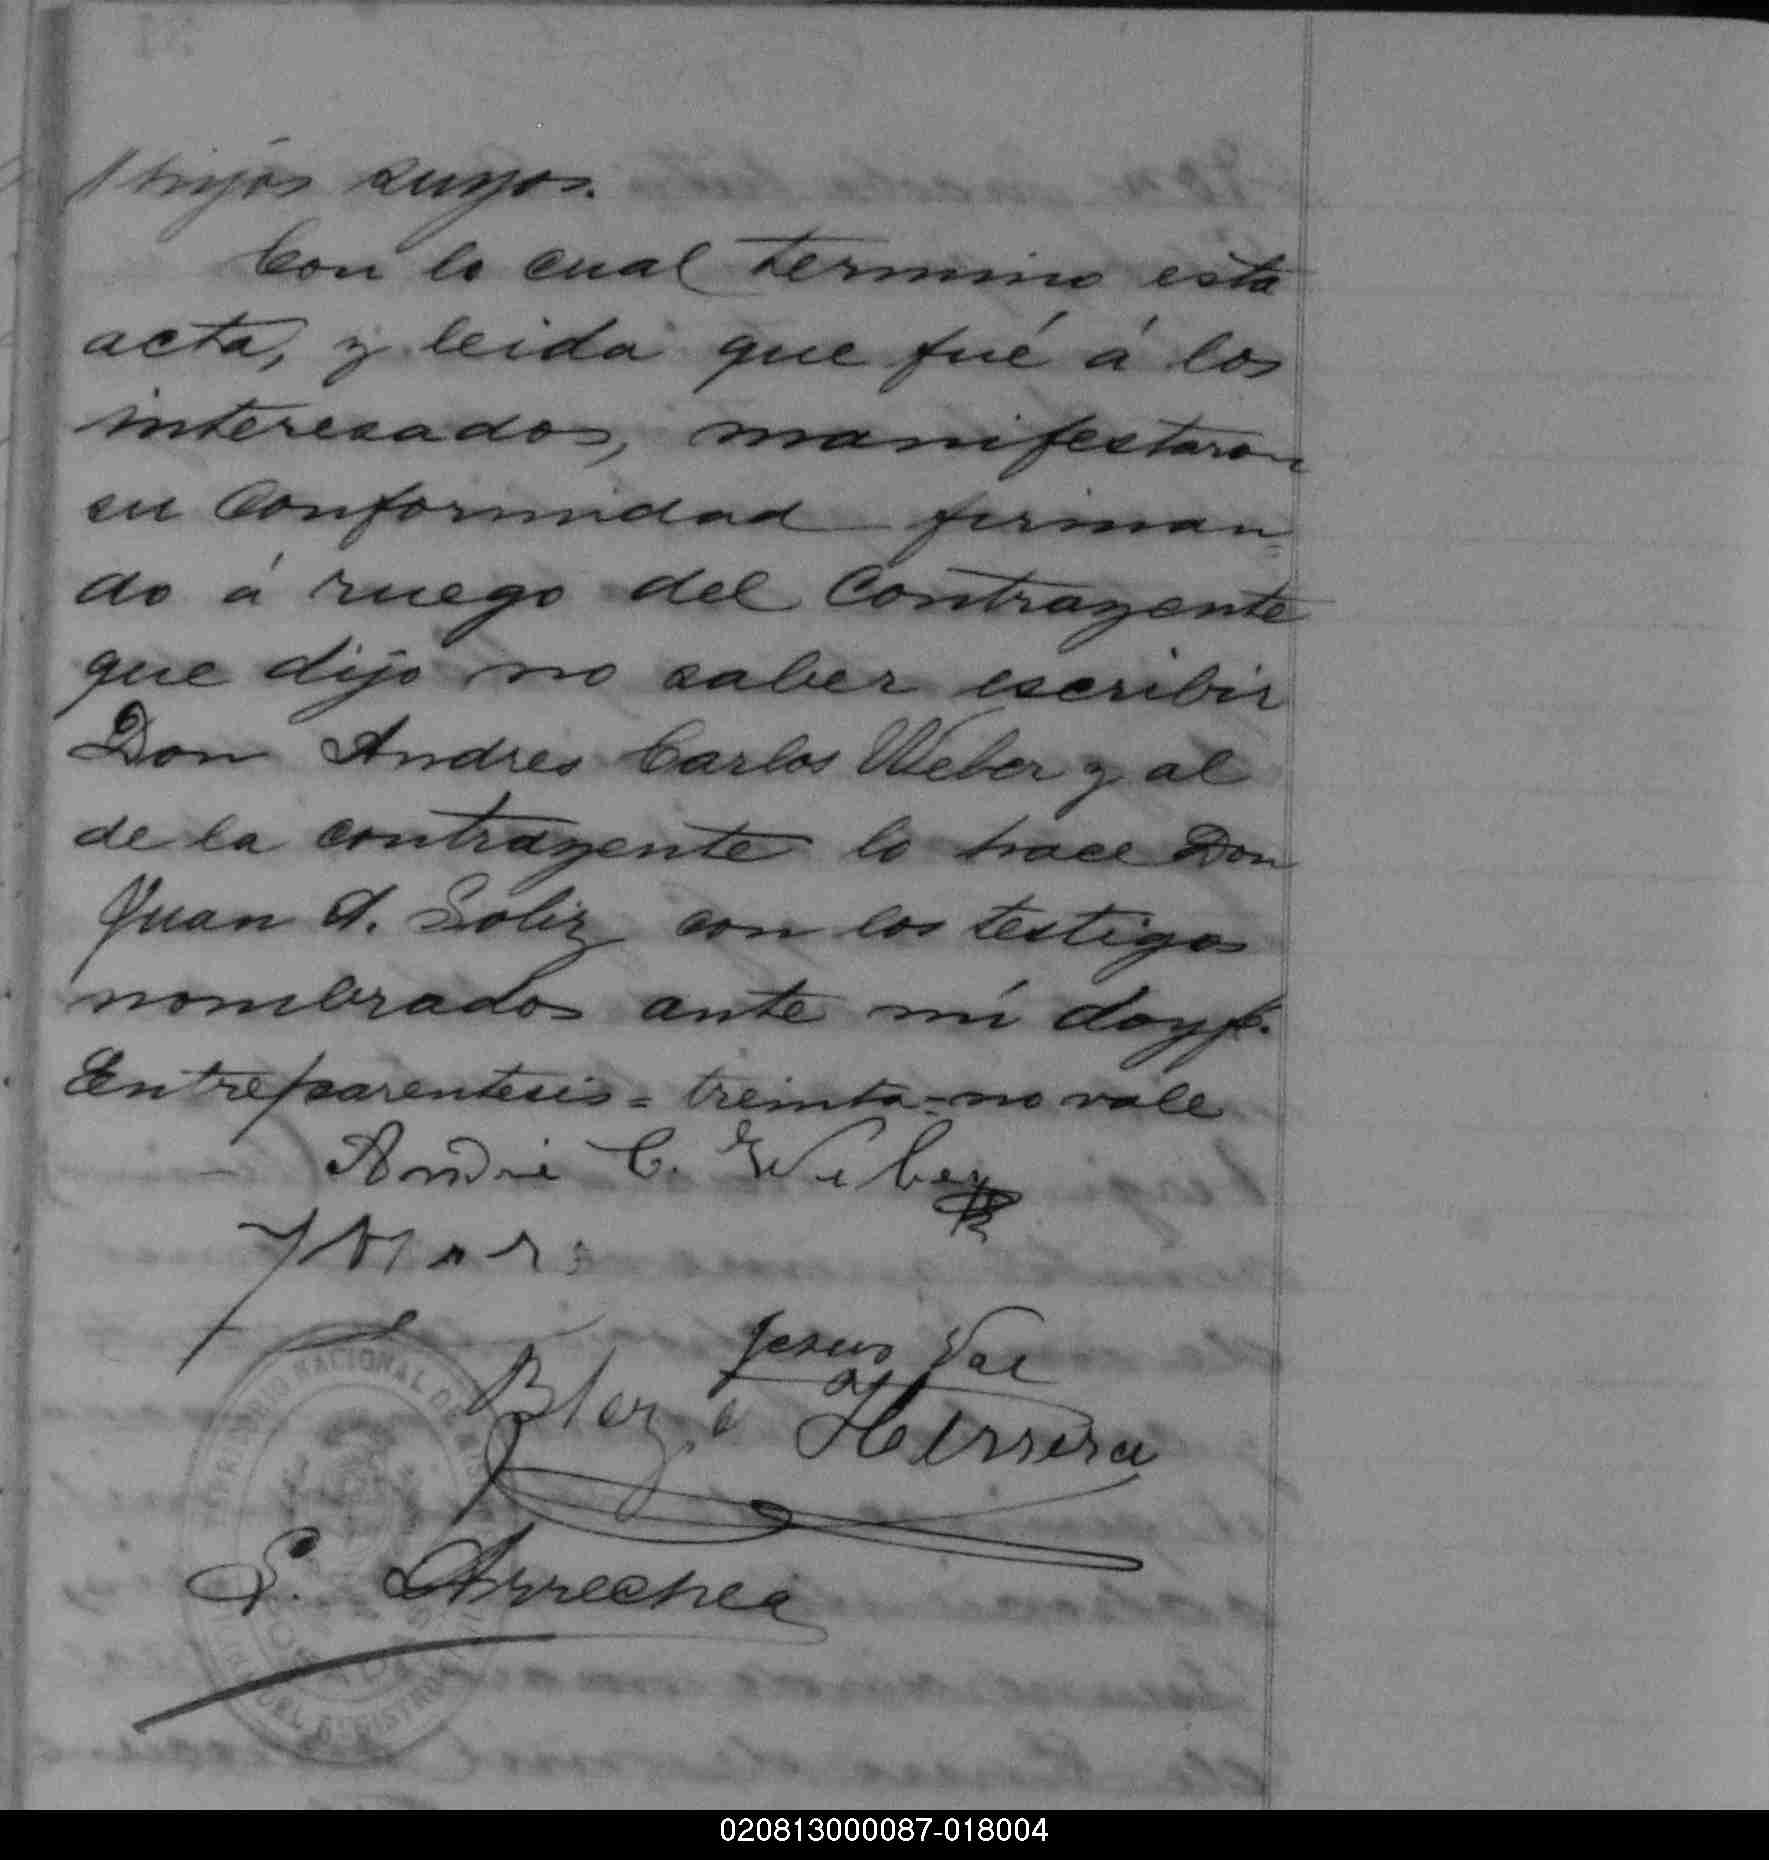 hijos suyos.
Con lo cual termino esta
acta, y leida que fué á los
interesados, manifestaron
su conformidad firman=
do á ruego del contrayente
que dijo no saber escribir
Don Andres Carlos Weber y al
de la contrayente lo hace Don
Juan A. Soliz con los testigos
nombrados ante mí doy fe.
Entreparentesis = treinta = no vale
André C. Weber
Jesus Val
Herrera
Arrechea
TERRITORIO NACIONAL DE
020813000087-018004